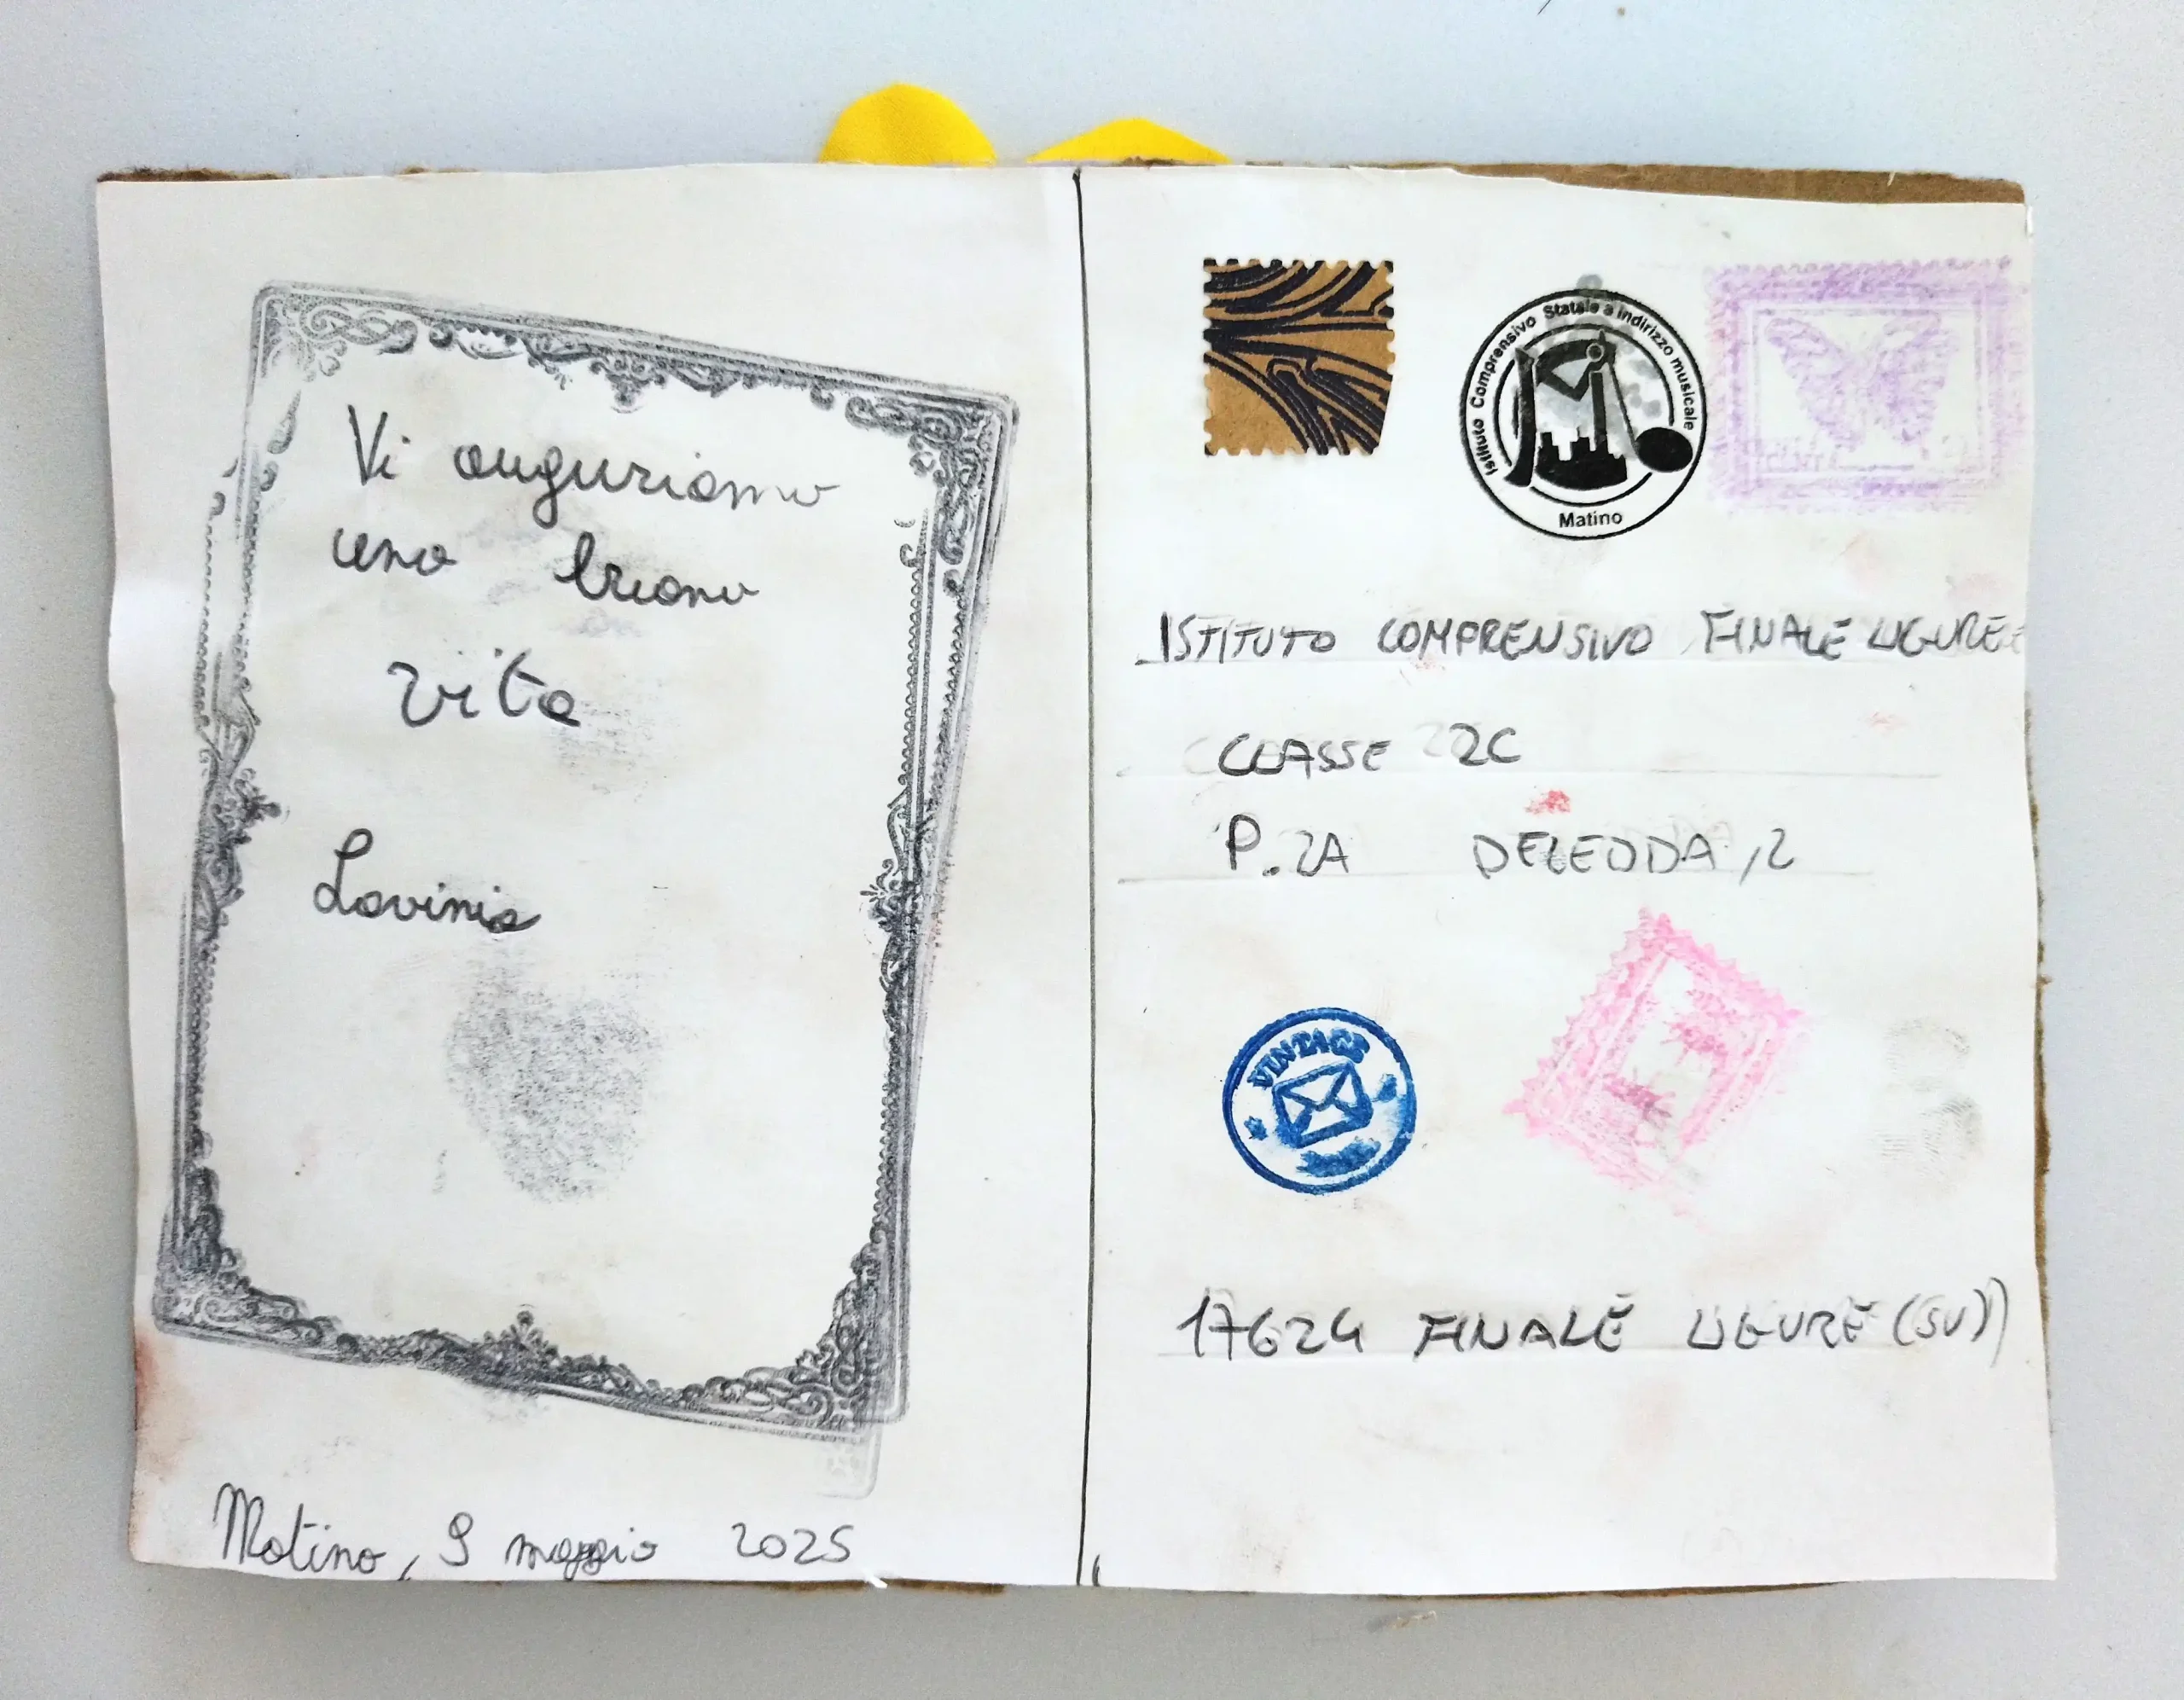 Vi auguriamo
una buona
vita
Lavinia
Matino, 9 maggio 2025
Istituto Comprensivo Statale a indirizzo musicale
Matino
ISTITUTO COMPRENSIVO FINALE LIGURE
CLASSE 2C
P.ZA DELEDDA, 2
VINTAGE
17624 FINALE LIGURE (SV)